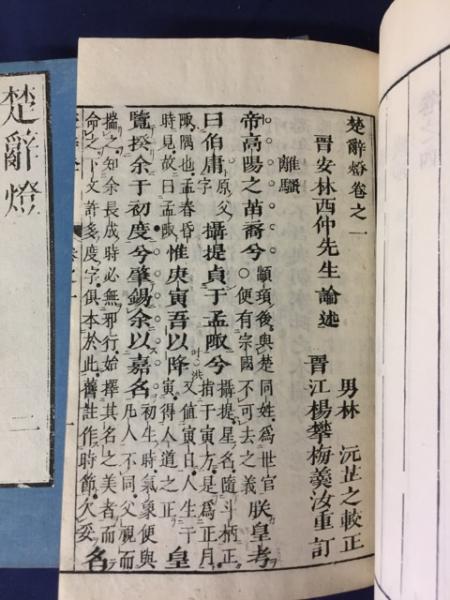 楚辭燈卷之一
晉安林西仲先生論述
男林沅芷之較正
晉江楊攀梅羹汝重訂
離騷
帝高陽之苗裔兮 顓頊後與楚同姓爲世官 便有宗國不可去之義 朕皇考
曰伯庸 原父字 攝提貞于孟陬兮 攝提星名隨斗柄正指于寅方是爲正月
陬隅也孟春昏時見故曰孟陬 惟庚寅吾以降 叶洪 又値寅日人生于寅得人道之正 皇
覽揆余于初度兮肇錫余以嘉名 初生時氣象便與凡人不同父視而
揣之知余長成時必無邪行始擇其名之美者而命之下文許多度字俱本於此舊註作時節欠妥 名
楚辭燈
二